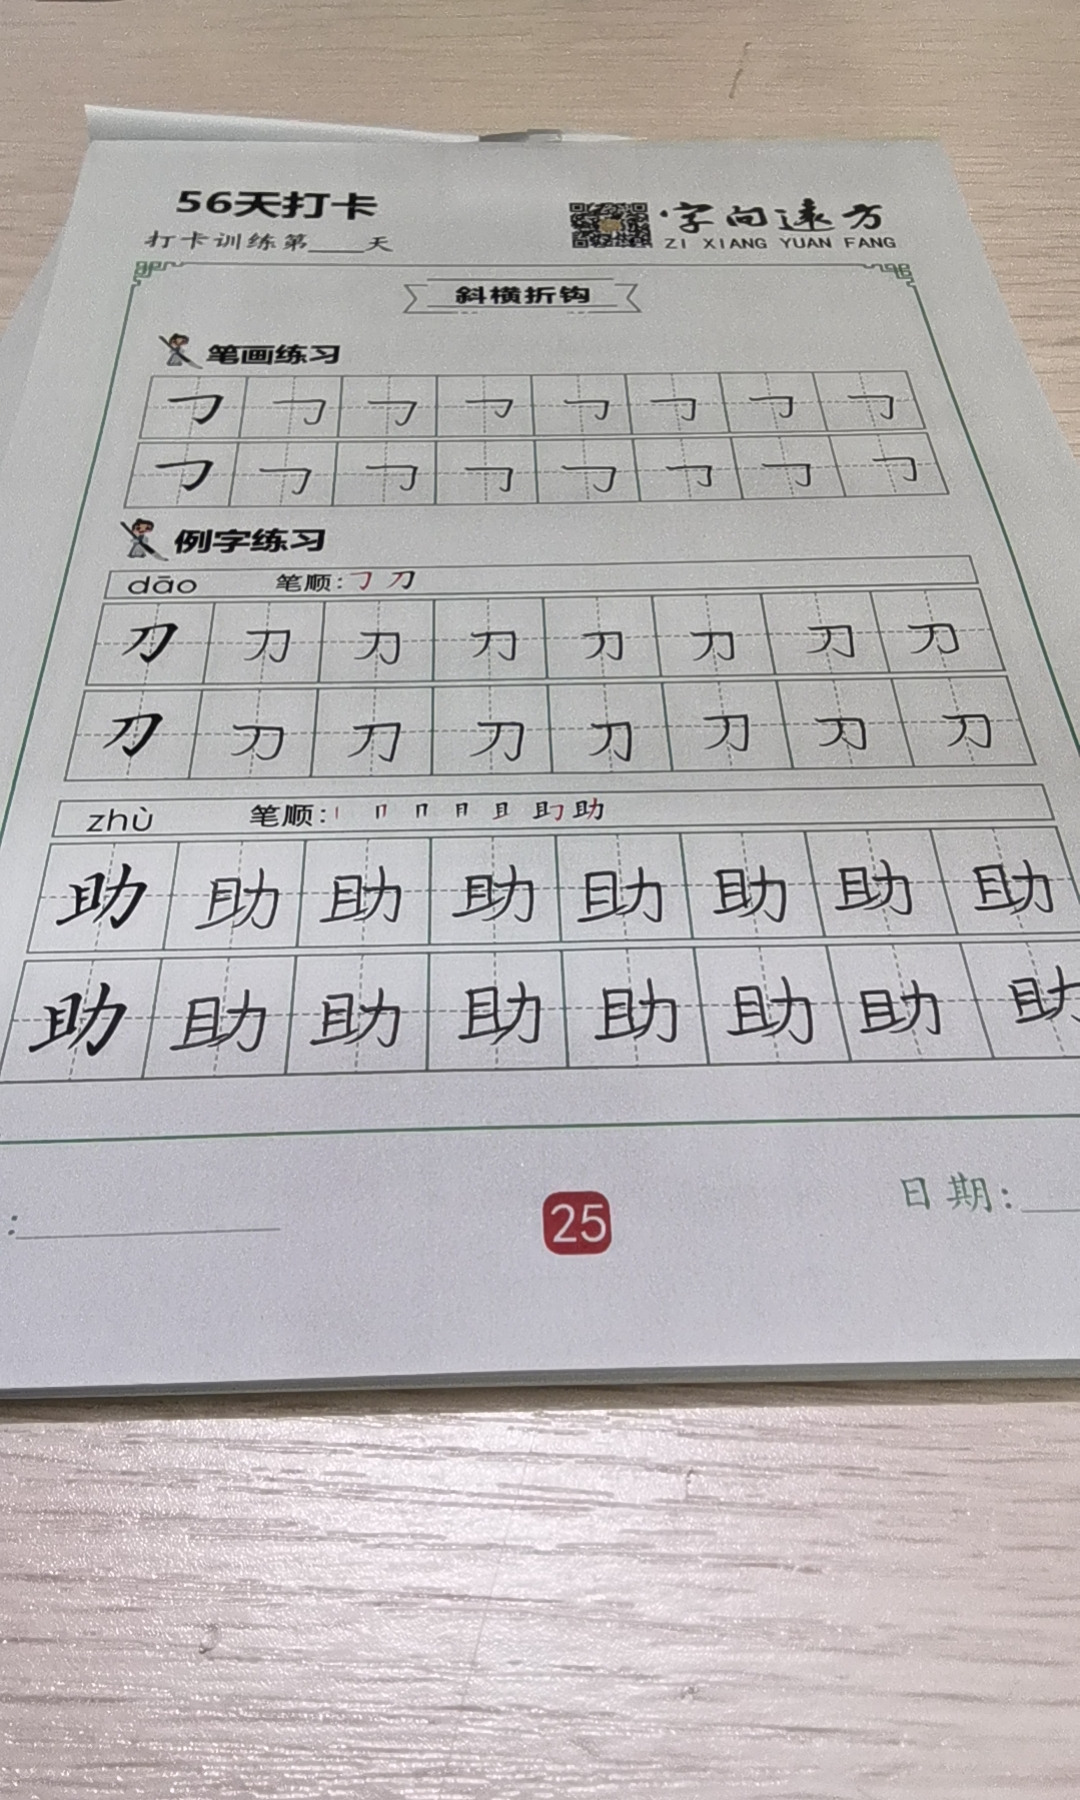 56天打卡
打卡训练第____天
字向远方
ZI XIANG YUAN FANG
斜横折钩
笔画练习
例字练习
dāo 笔顺: 刀
刀 刀 刀 刀 刀 刀 刀 刀
刀 刀 刀 刀 刀 刀 刀 刀
zhù 笔顺: 丨 冂 冂 月 且 助
助 助 助 助 助 助 助 助
助 助 助 助 助 助 助 助
:____
25
日期:____